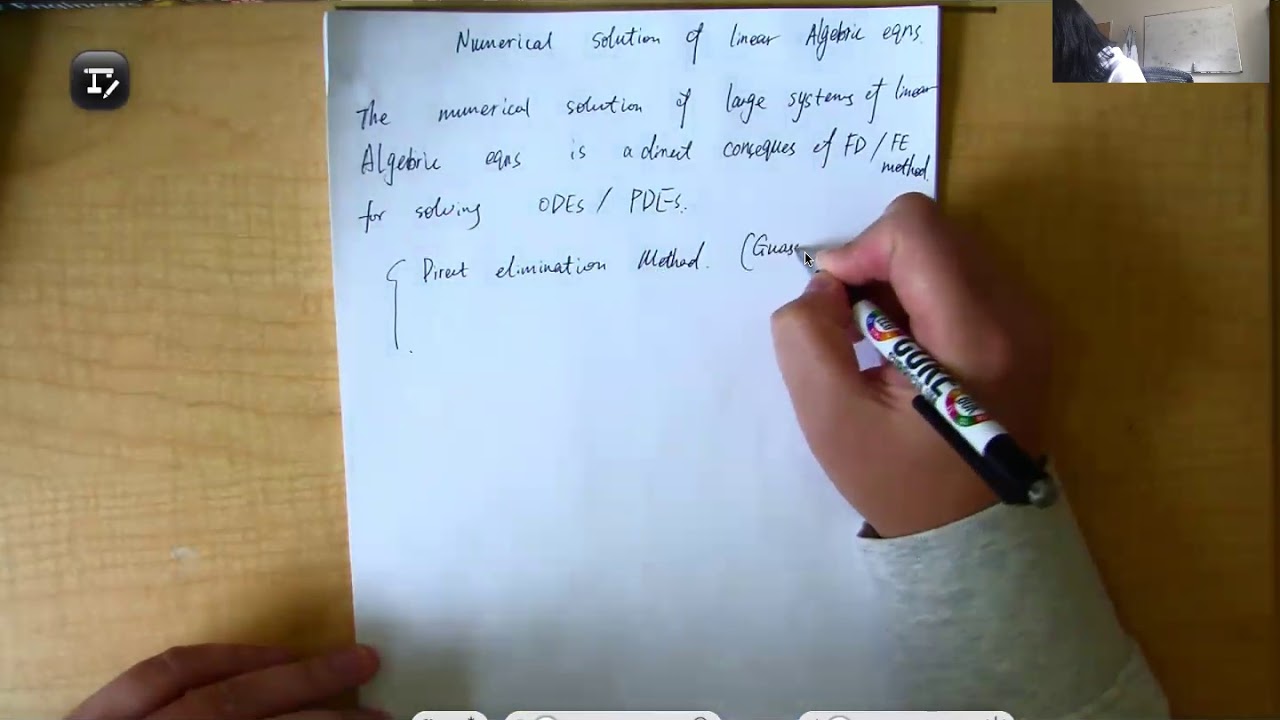 Engineers
Numerical solution of linear Algebric eqns.
The numerical solution of large systems of linear
Algebric eqns is a direct conseques of FD / FE
method.
for solving ODEs / PDEs.
Direct elimination Method. (Guass
GONE